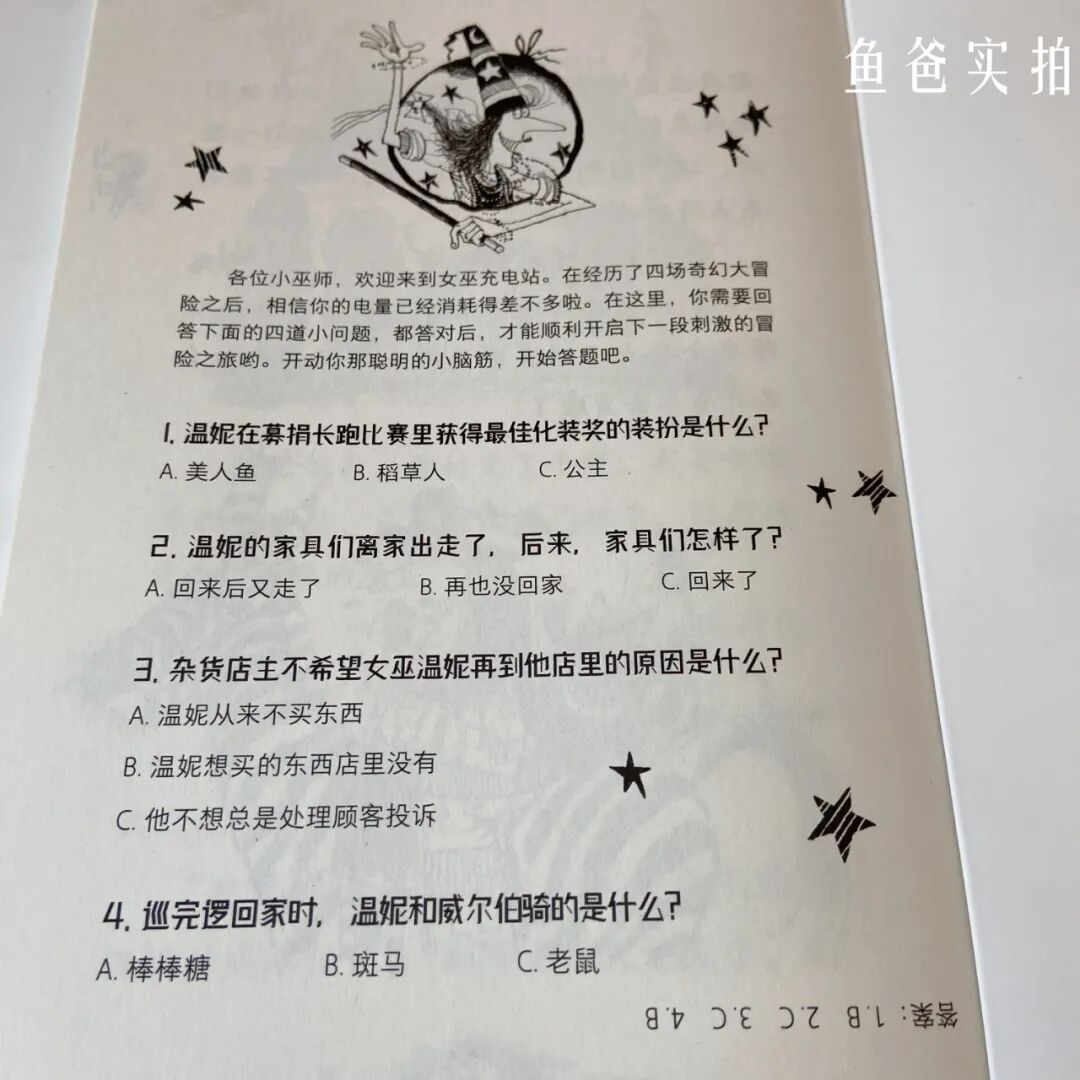 鱼爸实拍
各位小巫师，欢迎来到女巫充电站。在经历了四场奇幻大冒
险之后，相信你的电量已经消耗得差不多啦。在这里，你需要回
答下面的四道小问题，都答对后，才能顺利开启下一段刺激的冒
险之旅哟。开动你那聪明的小脑筋，开始答题吧。
1. 温妮在募捐长跑比赛里获得最佳化装奖的装扮是什么？
A. 美人鱼 B. 稻草人 C. 公主
2. 温妮的家具们离家出走了，后来，家具们怎样了？
A. 回来后又走了 B. 再也没回家 C. 回来了
3. 杂货店主不希望女巫温妮再到他店里的原因是什么？
A. 温妮从来不买东西
B. 温妮想买的东西店里没有
C. 他不想总是处理顾客投诉
4. 巡完逻回家时，温妮和威尔伯骑的是什么？
A. 棒棒糖 B. 斑马 C. 老鼠
答案：1.B 2.C 3.C 4.B